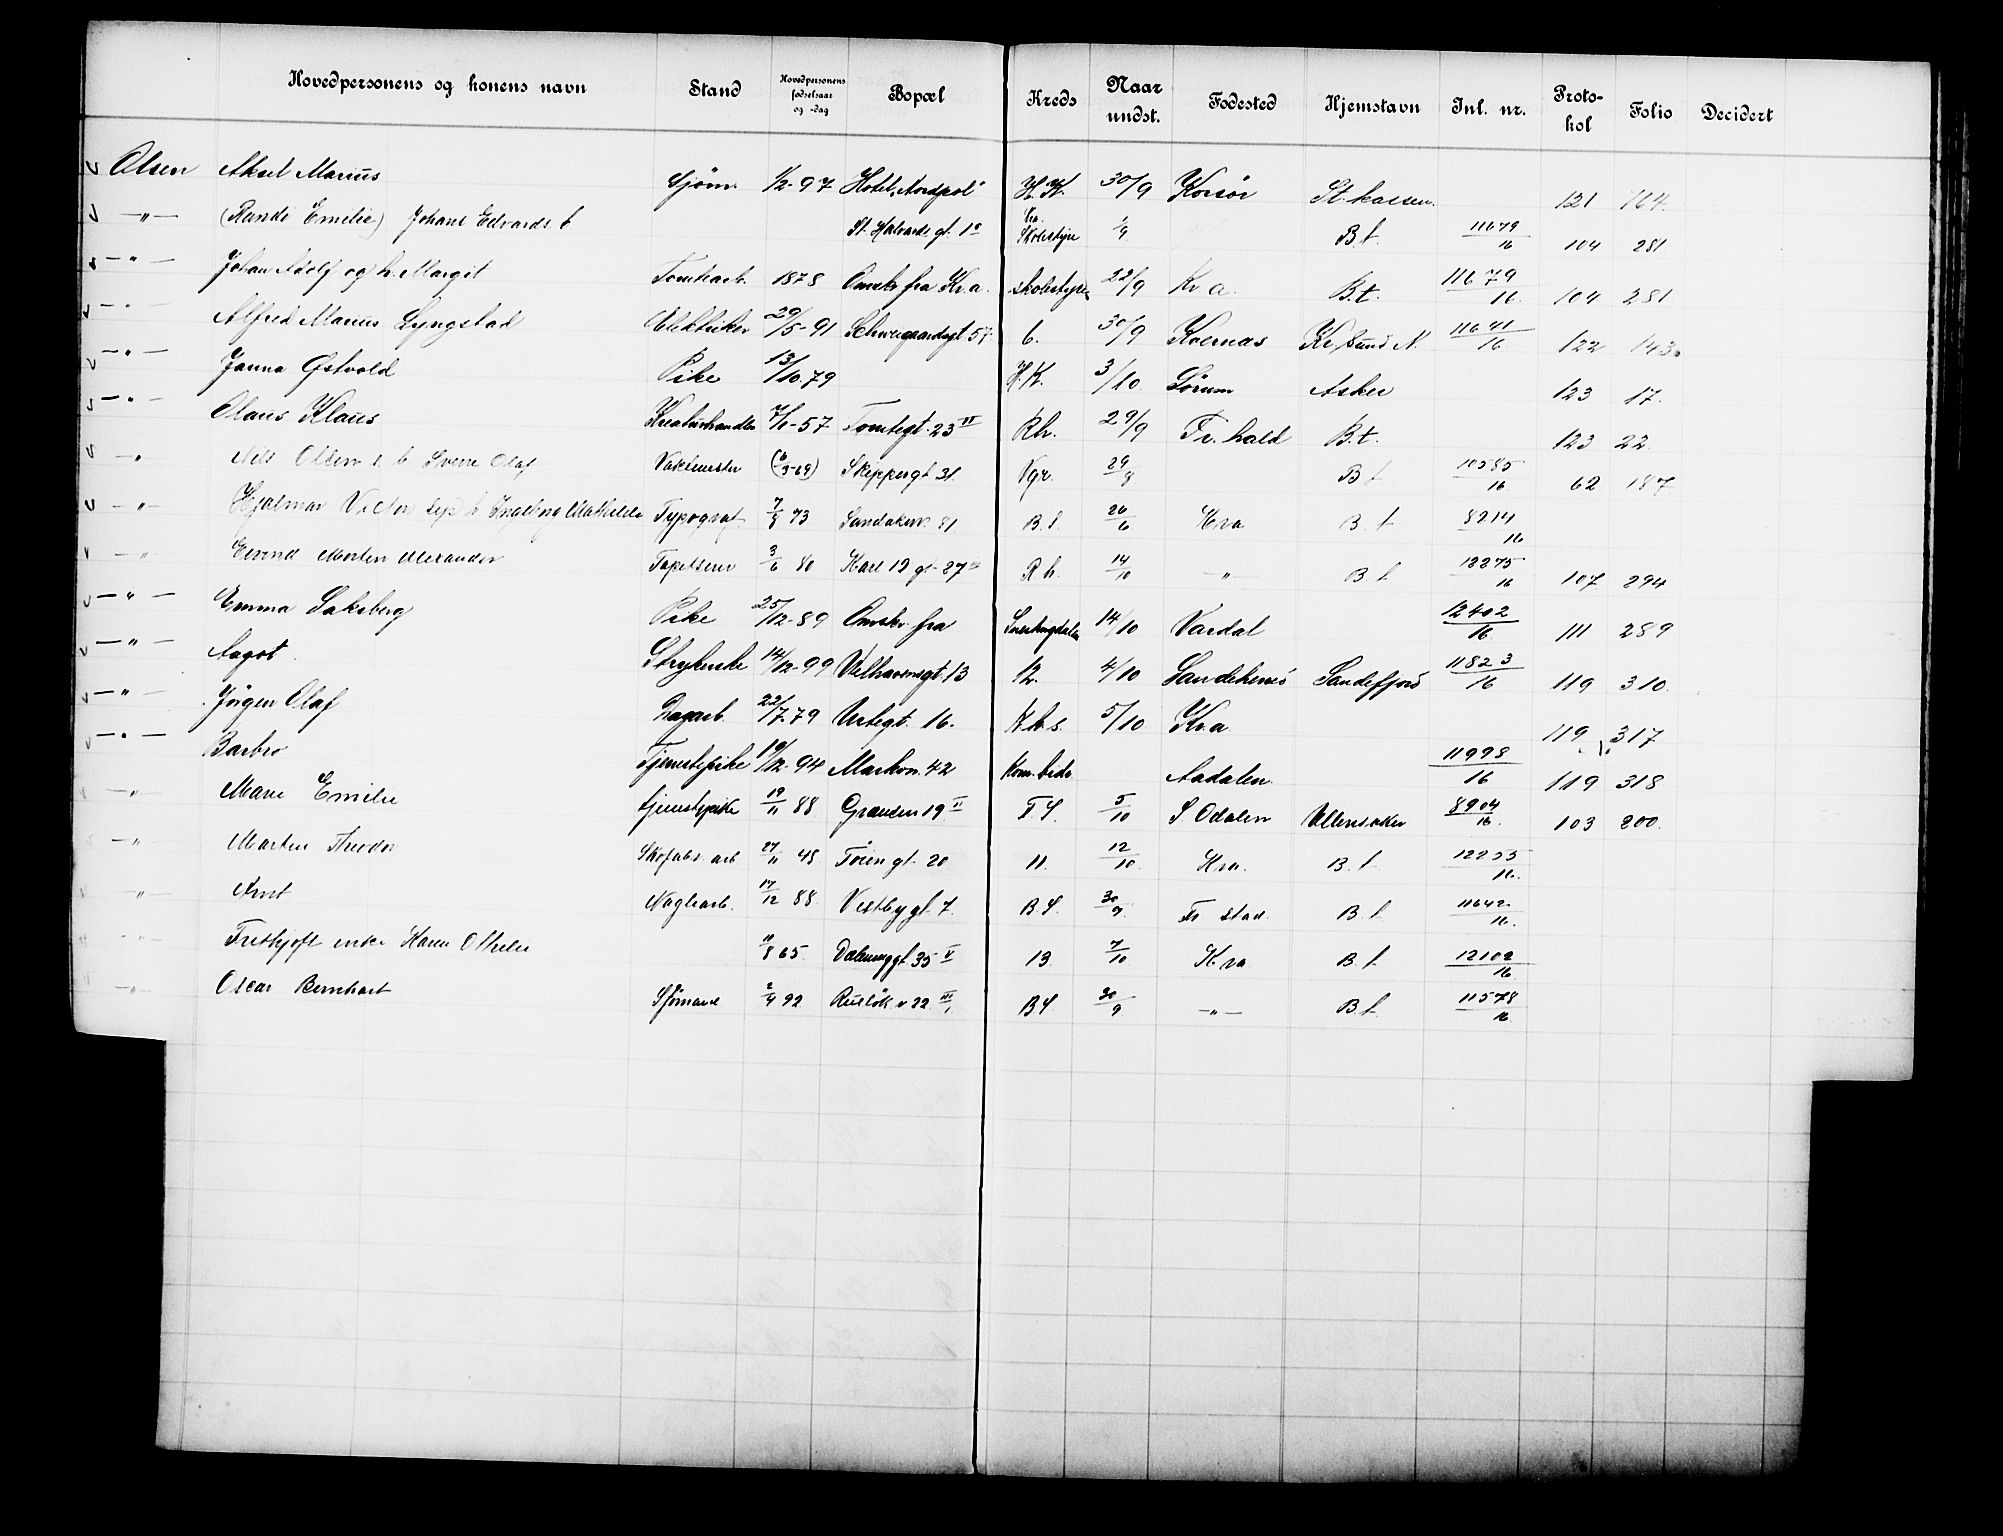 Hovedpersonens og konens navn Stand Hovedpersonens fødselsaar og -dag Bopæl Kreds Naar undst. Fødested Hjemstavn Inl. nr. Protokol Folio Decidert
Olsen Aksel Marius Sjøm. 1/2-97 Hotel „Nordpol" H.K. 30/9 Korsör St. 121 164.
—"— (Randi Emilie) Johans Edvards b St. Halvards gt. 1 Kra. Skolestyre 1/9 B.t. 11679/16 104 281
—"— Johan Adolf og h. Margit Tomtearb. 1878 Omskr. fra Kr.a. Skolestyre 22/9 Kr.a. B.t. 11679/16 104 281
—"— Alfred Marius Lyngstad Elektriker 29/5-91 Schweigaardsgt. 57 6. 30/9 Kvernæs Kr.sund N. 11641/16 122 143
—"— Janna Østvold Pike 13/10.79 H.K. 3/10 Sörum Asker 123 17.
—"— Olaus Klaus Kreaturhandler 7/1-57 Tomtegt. 23 II Rh. 29/9 Fr.hald B.t. 123 22
—" Nils Olsen s. b Sverre Olaf Vaktmester (6/3-69) Skippergt 31. Vgr. 29/8 B t 10585/16 62 187
—"— Hjalmar Victor Ingeborg Mathilde Typograf 7/8 73 Sandakerv. 81 B.S 20/6 Kra B. t 8214/16
—"— Eivind Morten Alexander Tapetserer 3/6 80 Karl 12 gt 27 R h. 14/10 —"— B t. 12275/16 107 294
—"— Emma Saksberg Pike 25/12-89 Omskr. fra Snertingdalen 14/10 Vardal 12402/16 111 289
—"— Aagot Strykerske 14/12-99 Welhavensgt. 13 12. 4/10 Sandeherred Sandefjord 11823/16 119 310.
—"— Jörgen Olaf Dagarb. 22/7.79 Urtegt. 16. K h. s. 5/10 Kr.a 119 317
—"— Barbro Tjenestepike 19/12-94 Markvn. 42 Kom.bedr. Aadalen 11998/16 119 318
—"— Marie Emilie tjenestepike 19/11 88 Grønsen 19 II T.S. 5/10 S Odalen Ullensaker 8904/16. 103 200.
—"— Martin Theodor Skofabr. arb 27/11 48 Töien gt 20 11. 12/10 Kra. B. t. 12255/16.
—"— Arnt Naglearb. 17/12 88 Vestbygt. 7. B.S. 30/9. Fr stad. B. t. 11642/16.
—"— Fritskjoft enke Karen Othelie 11/8 65. Dælenenggt 35 V 13 7/10 Kra B. t. 12102/16
—"— Oscar Bernhart Sjömand 2/4 92 Ruselök v 22 III B S. 30/9 —"— B.t. 11578/16